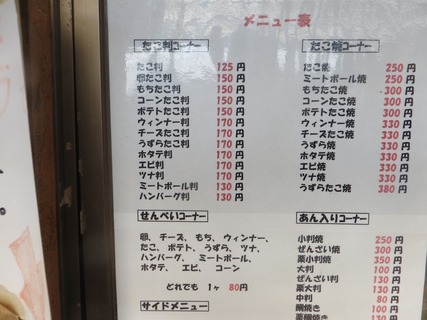 メニュー表
たこ判コーナー
たこ判 125円
卵たこ判 150円
もちたこ判 150円
コーンたこ判 150円
ポテトたこ判 150円
ウィンナー判 170円
チーズたこ判 170円
うずらたこ判 170円
ホタテ判 170円
エビ判 170円
ツナ判 170円
ミートボール判 130円
ハンバーグ判 130円
せんべいコーナー
卵、チーズ、もち、ウィンナー、
たこ、ポテト、うずら、ツナ、
ハンバーグ、ミートボール、
ホタテ、エビ、コーン
どれでも 1ヶ 80円
サイドメニュー
たこ焼コーナー
たこ焼 250円
ミートボール焼 250円
もちたこ焼 300円
コーンたこ焼 300円
ポテトたこ焼 300円
ウィンナー焼 330円
チーズたこ焼 330円
うずら焼 330円
ホタテ焼 330円
エビ焼 330円
ツナ焼 330円
うずらたこ焼 380円
あん入りコーナー
小判焼 250円
ぜんざい焼 300円
栗小判焼 350円
大判 100円
ぜんざい判 130円
栗大判 130円
中判 80円
鯛焼き 100円
栗鯛焼き 130円